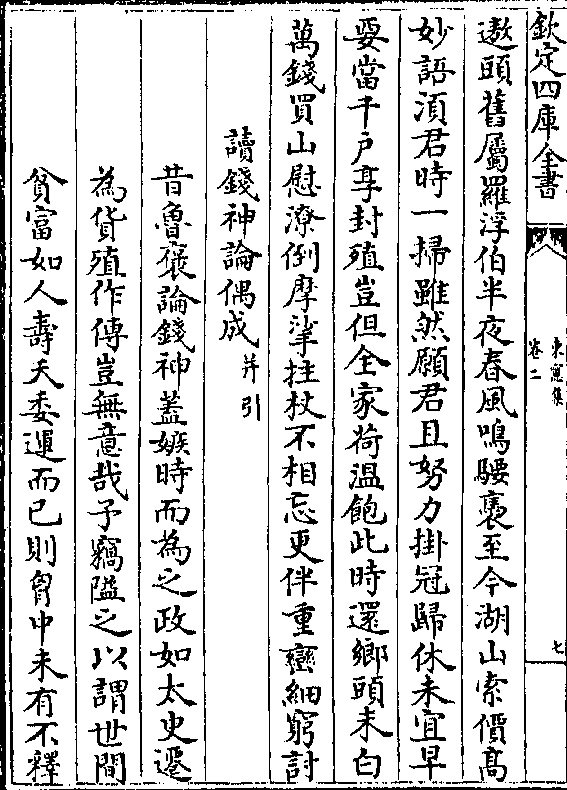 欽定四庫全書
東窻集
卷二
七
遨頭舊屬羅浮伯半夜春風鳴騕褭至今湖山索價髙
妙語湏君時一掃雖然願君且努力掛冠歸休未宜早
要當千戸享封殖豈但全家荷温飽此時還鄉頭未白
萬錢買山慰潦倒摩挲拄杖不相忘更伴重巒細窮討
讀錢神論偶成并引
昔魯褒論錢神盖嫉時而為之政如太史遷
為貨殖作傳豈無意哉予竊隘之以謂世間
貧富如人壽夭委運而已則胷中未有不釋